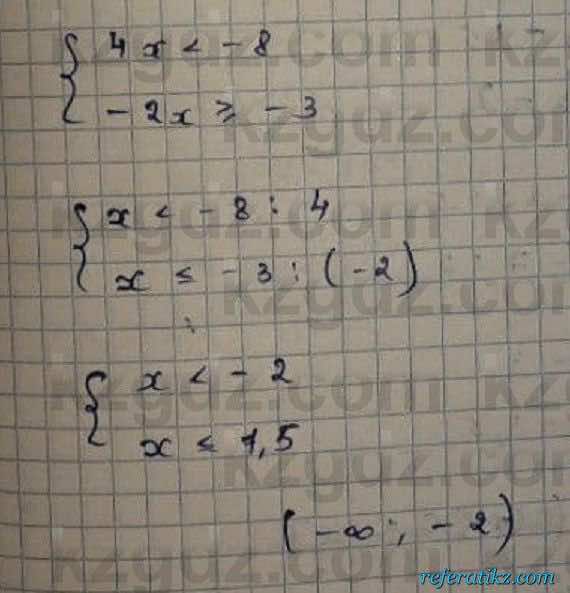 { 4x < -8
-2x ≥ -3
{ x < -8 : 4
x ≤ -3 : (-2)
{ x < -2
x ≤ 1,5
(-∞; -2)
kzguz.com
referatikz.com